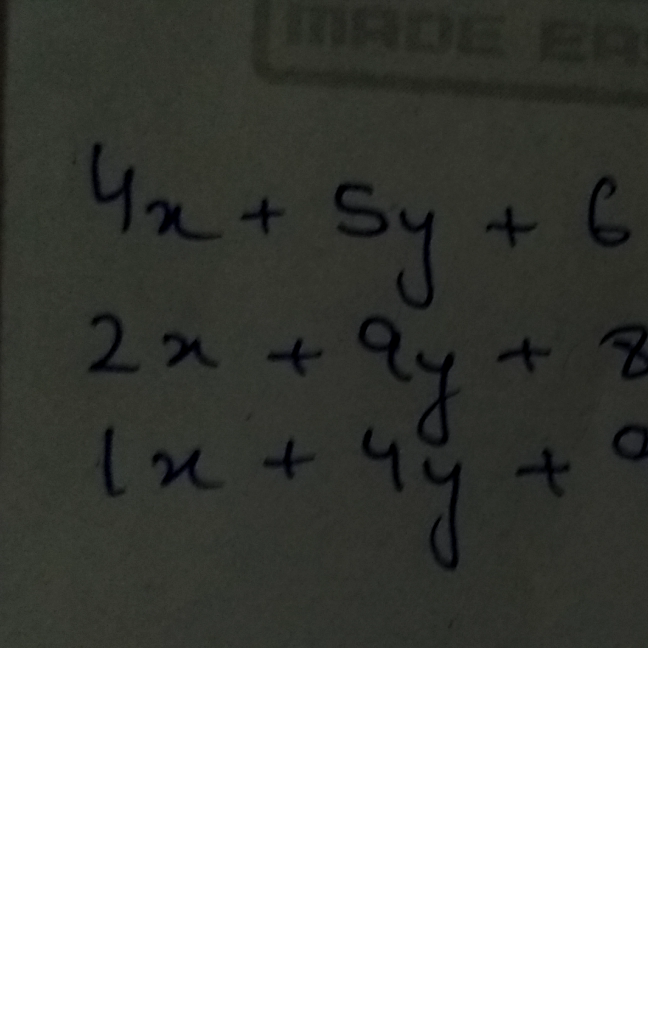 MADE EA
4x + 5y + 6
2x + 9y + 8
1x + 4y + 9